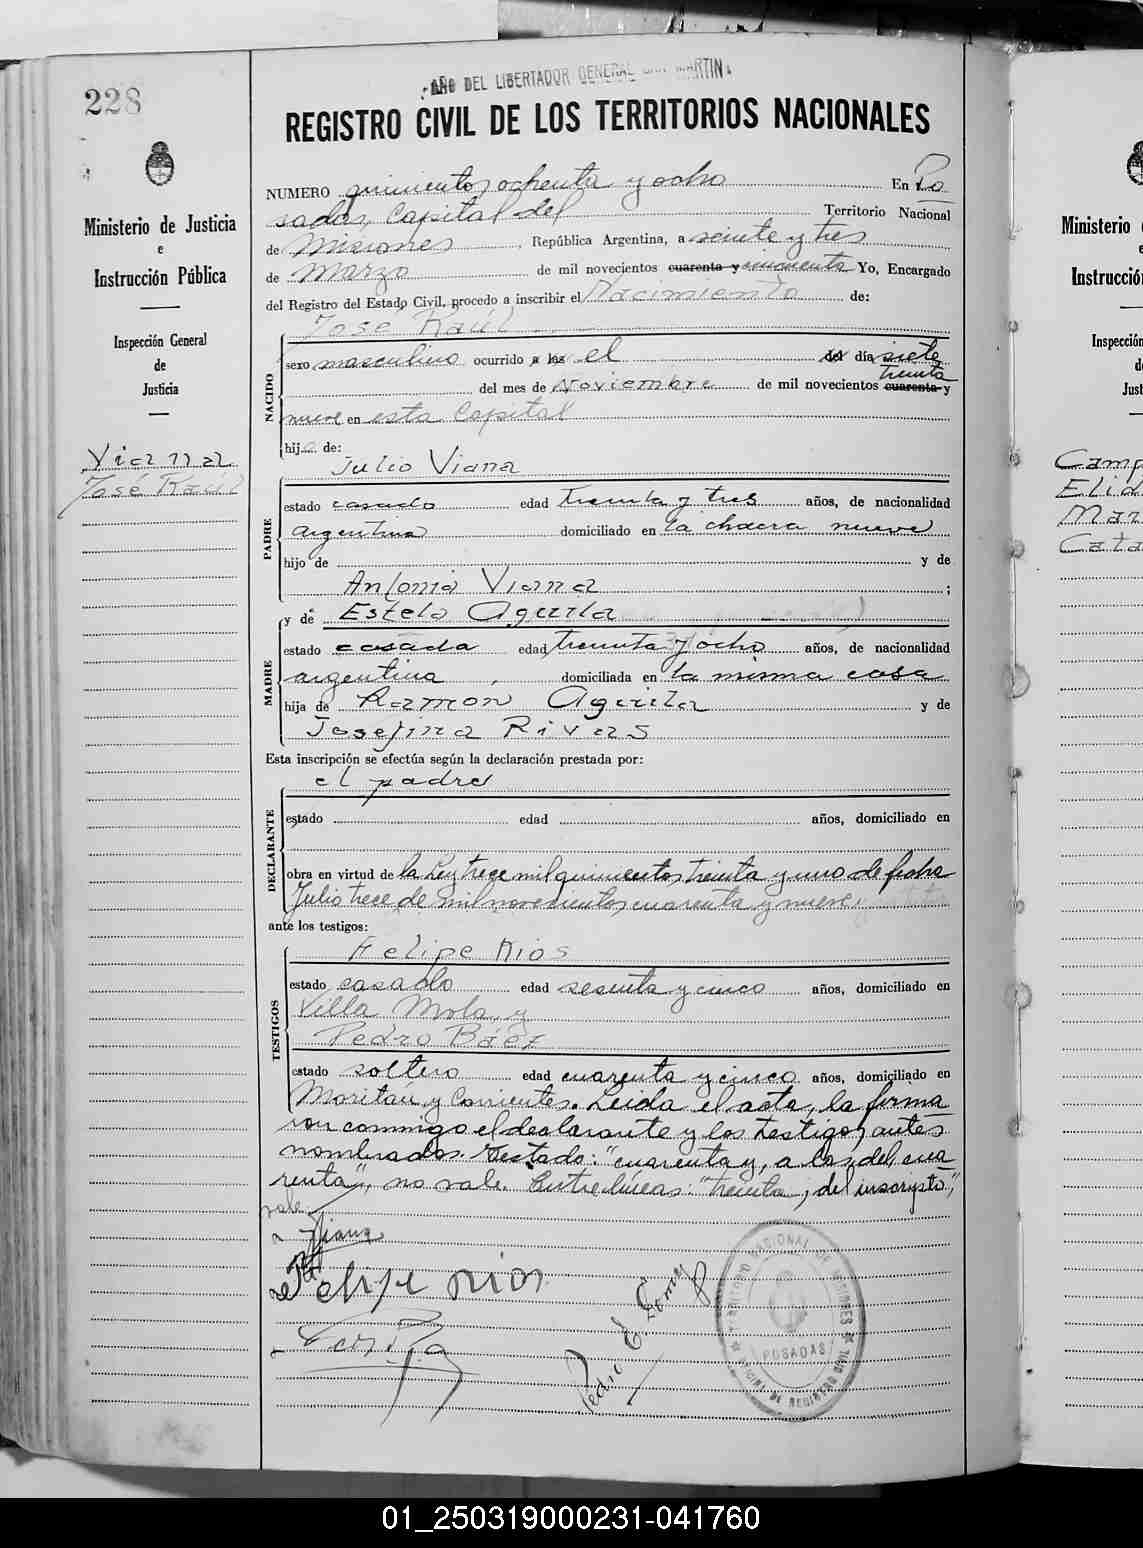 228
AÑO DEL LIBERTADOR GENERAL SAN MARTIN
REGISTRO CIVIL DE LOS TERRITORIOS NACIONALES
Ministerio de Justicia
e
Instrucción Pública
Inspección General
de
Justicia
Viana
José Raúl
NUMERO quinientos ochenta y ocho En Po
sadas, Capital del Territorio Nacional
de Misiones, República Argentina, a veinte y tres
de Marzo de mil novecientos cuarenta y cincuenta Yo, Encargado
del Registro del Estado Civil, procedo a inscribir el Nacimiento de:
José Raúl
NACIDO
sexo masculino ocurrido a las el del día siete
treinta
del mes de Noviembre de mil novecientos cuarenta y
nueve en esta Capital
hijo de:
Julio Viana
PADRE
estado casado edad treinta y tres años, de nacionalidad
argentina domiciliado en la chacra nueve
hijo de y de
Antonia Viana ;
y de Estela Aguila
MADRE
estado casada edad treinta y ocho años, de nacionalidad
argentina, domiciliada en la misma casa
hija de Ramon Aguila y de
Josefina Rivas
Esta inscripción se efectúa según la declaración prestada por:
el padre
DECLARANTE
estado edad años, domiciliado en
obra en virtud de la Ley trece mil quinientos treinta y uno de fecha
Julio trece de mil novecientos cuarenta y nueve,
ante los testigos:
Felipe Rios
TESTIGOS
estado casado edad sesenta y cinco años, domiciliado en
Villa Mola, y
Pedro Báez
estado soltero edad cuarenta y cinco años, domiciliado en
Moritán y Corrientes. Leída el acta, la firma
ron conmigo el declarante y los testigos antes
nombrados. Testado: "cuarenta y, a las, del, cua
renta", no vale. Entre líneas: "treinta,
vale.
Viana
Felipe rios
Pedro E.
TERRITORIO NACIONAL DE MISIONES
POSADAS
Camp
Elid
Mar
Cata
Ministerio
Instrucció
Inspección
d
Just
01_250319000231-041760